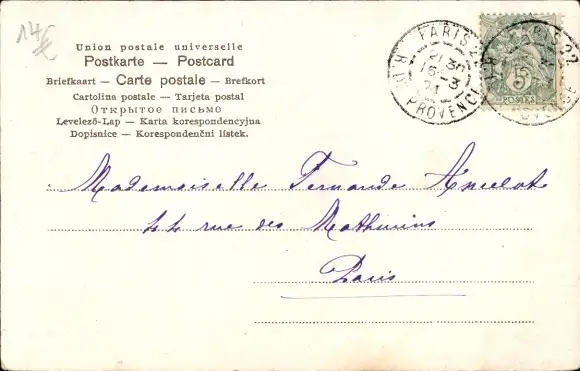 14€
Union postale universelle
Postkarte — Postcard
Briefkaart — Carte postale — Brefkort
Cartolina postale — Tarjeta postal
Открытое письмо
Levelező-Lap — Karta korespondencyjna
Dopisnice — Korespondenční lístek.
PARIS 22
21 3E
16-3
04
R. DE PROVENCE
PARIS 22
5
POSTES
Mademoiselle Fernande Ancelot
44 rue des Mathurins
Paris